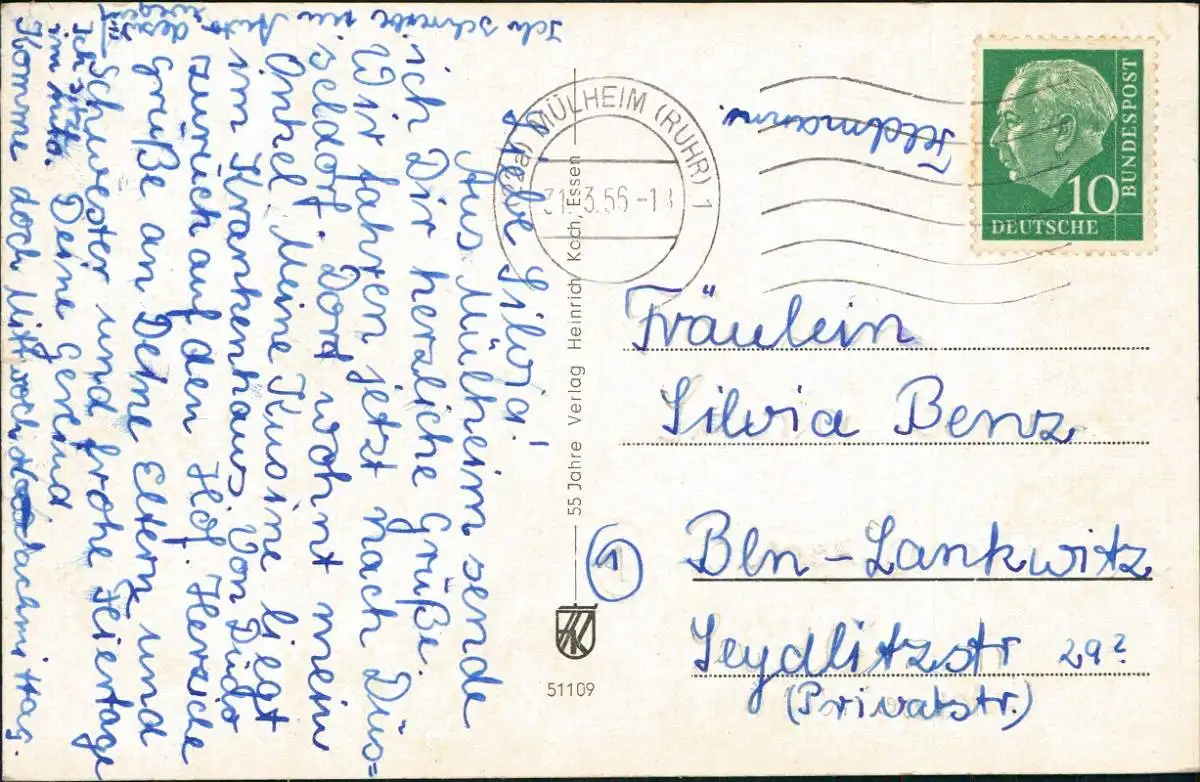 Liebe Silvia!
Aus Mülheim sende
ich Dir herzliche Grüße.
Wir fahren jetzt nach Düs=
seldorf. Dort wohnt mein
Onkel. Meine Kusine liegt
im Krankenhaus. Von Düdo
zurück auf den Hof. Herzliche
Grüße an Deine Eltern und
Schwester und frohe Feiertage
Deine Gerlind
Ich sitze
im Auto.
Komme doch Mittwoch Nachmittag.
Ich schreibe im Auto
deswegen
Feldmann.
(22a) MÜLHEIM (RUHR) 1
31.-3.56-18
10
DEUTSCHE
BUNDESPOST
Fräulein
Silvia Benz
1
Bln-Lankwitz
Seydlitzstr 29?
(Privatstr.)
55 Jahre Verlag Heinrich Koch, Essen
51109